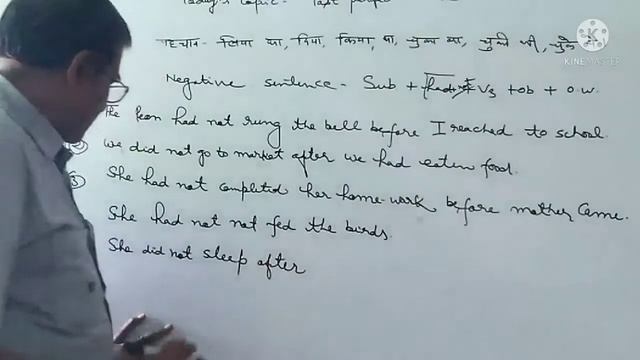 Today's topic - Past perfe
पहचान - लिया था, दिया, किया था, चुका था, चुकी थी, चुके थे
Negative sentence - Sub + had + V3 + ob + o.w.
The Peon had not rung the bell before I reached to school.
② We did not go to market after we had eaten food.
③ She had not completed her home-work before mother came.
She had not not fed the birds.
She did not sleep after
KINEMASTER